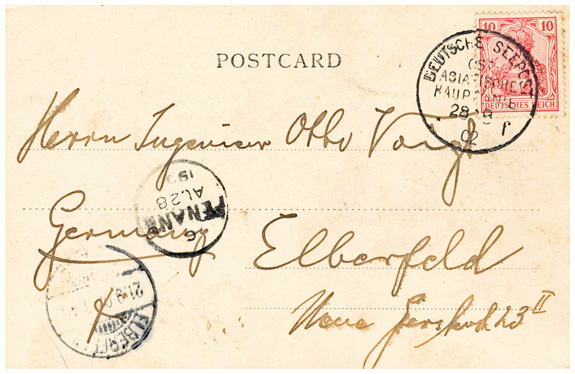 POSTCARD
10 10
DEUTSCHES REICH
DEUTSCHE SEEPOST
OST-
ASIATISCHE
HAUPTLINIE
28 8
02
f
Herrn Ingenieur Otto
G
PENANG
AU 28
190
Germany
Elberfeld
Neue 23 II
ELBERF
21.9.0